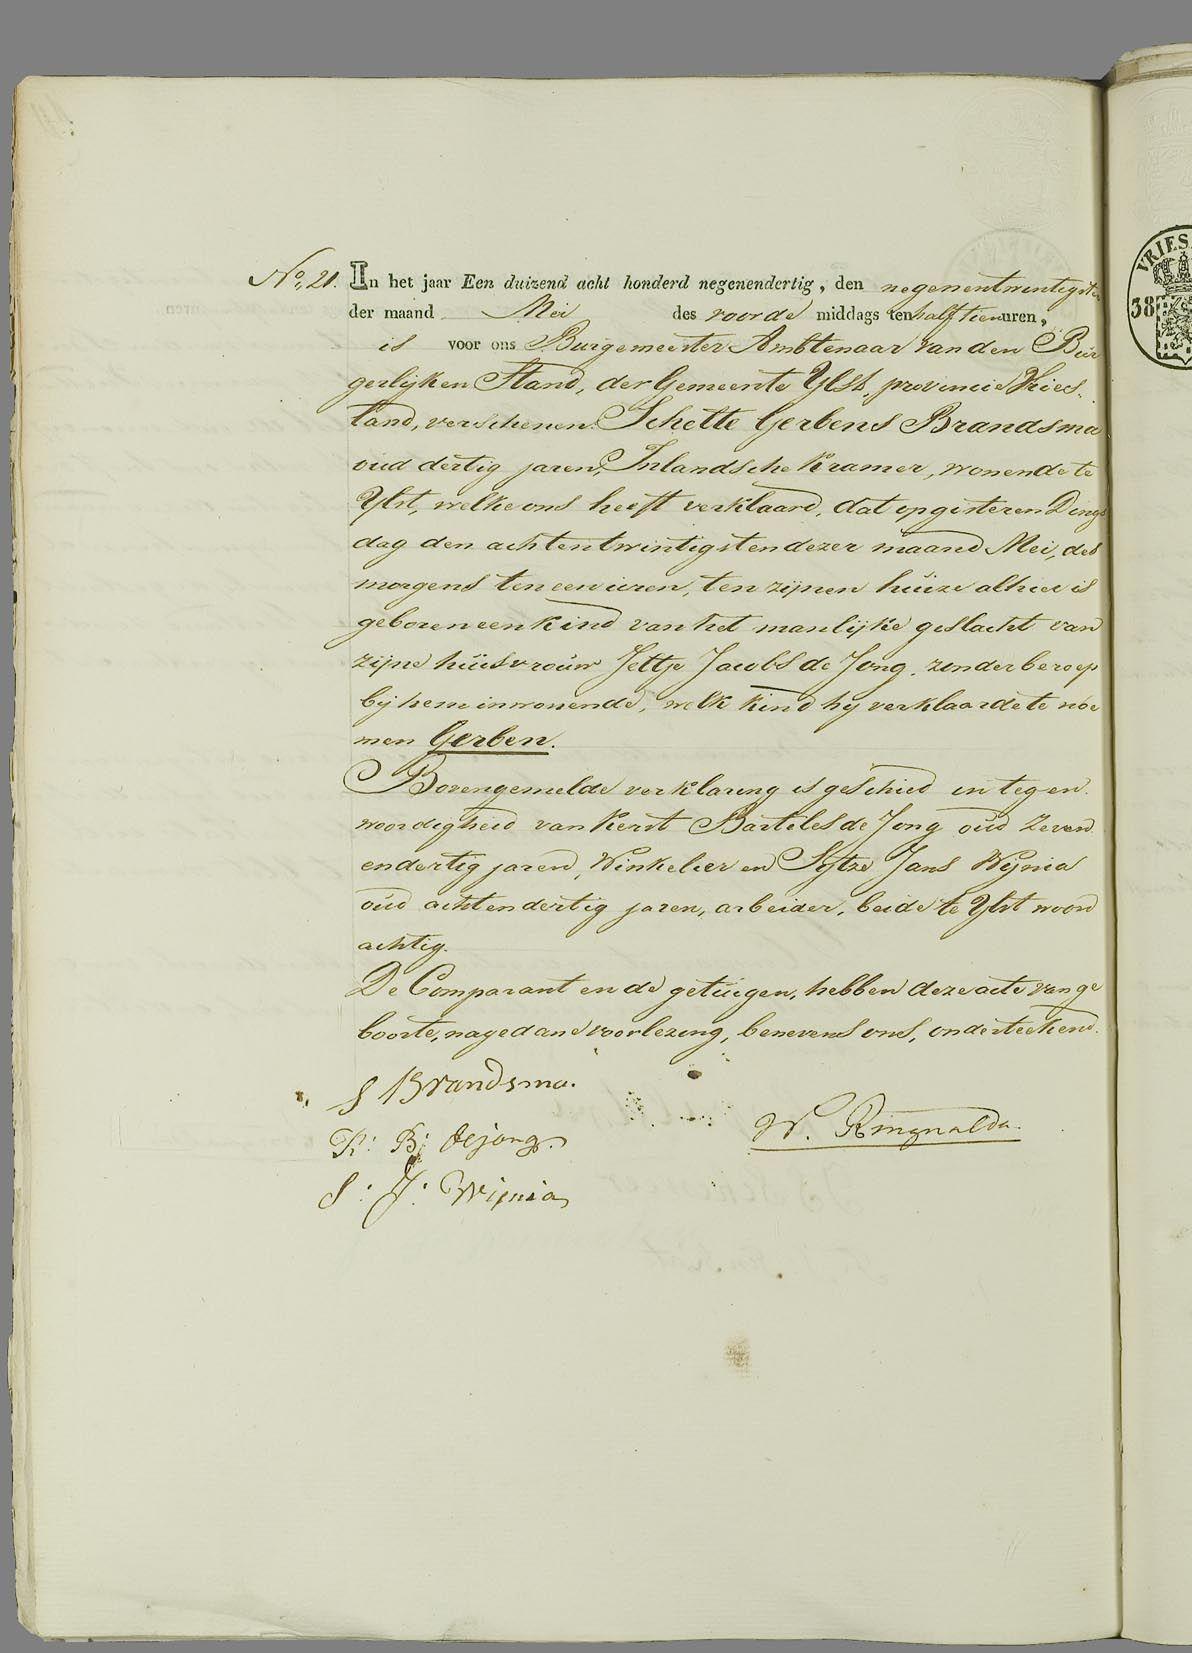 No. 21. In het jaar Een duizend acht honderd negenendertig, den negenentwintigsten
der maand Mei des voorde middags ten half tien uren,
is voor ons Burgemeester Ambtenaar van den Bur
gerlijken Stand, der Gemeente Ylst, provincie Vries-
land, verschenen: Schelte Gerbens Brandsma
oud dertig jaren, Inlandsche Kramer, wonende te
Ylst, welke ons heeft verklaard, dat op gisteren Dings
dag den achtentwintigsten dezer maand Mei, des
morgens ten een uren, ten zijnen huize alhier is
geboren een kind van het manlijke geslacht van
zijne huisvrouw Jeltje Jacobs de Jong, zonder beroep
bij hem inwonende, welk kind hij verklaarde te noe
men Gerben.
Bovengemelde verklaring is geschied in tegen
woordigheid van Kerst Barteles de Jong oud Zeven
endertig jaren, Winkelier en Sytze Jans Wijnia
oud achtendertig jaren, arbeider, beide te Ylst woon
achtig.
De Comparant en de getuigen, hebben deze acte van ge
boorte, na gedane voorlezing, benevens ons, onderteekend.
S Brandsma.
K: B: de jong
W. Ringnalda.
S: J: Wijnia
VRIES
38